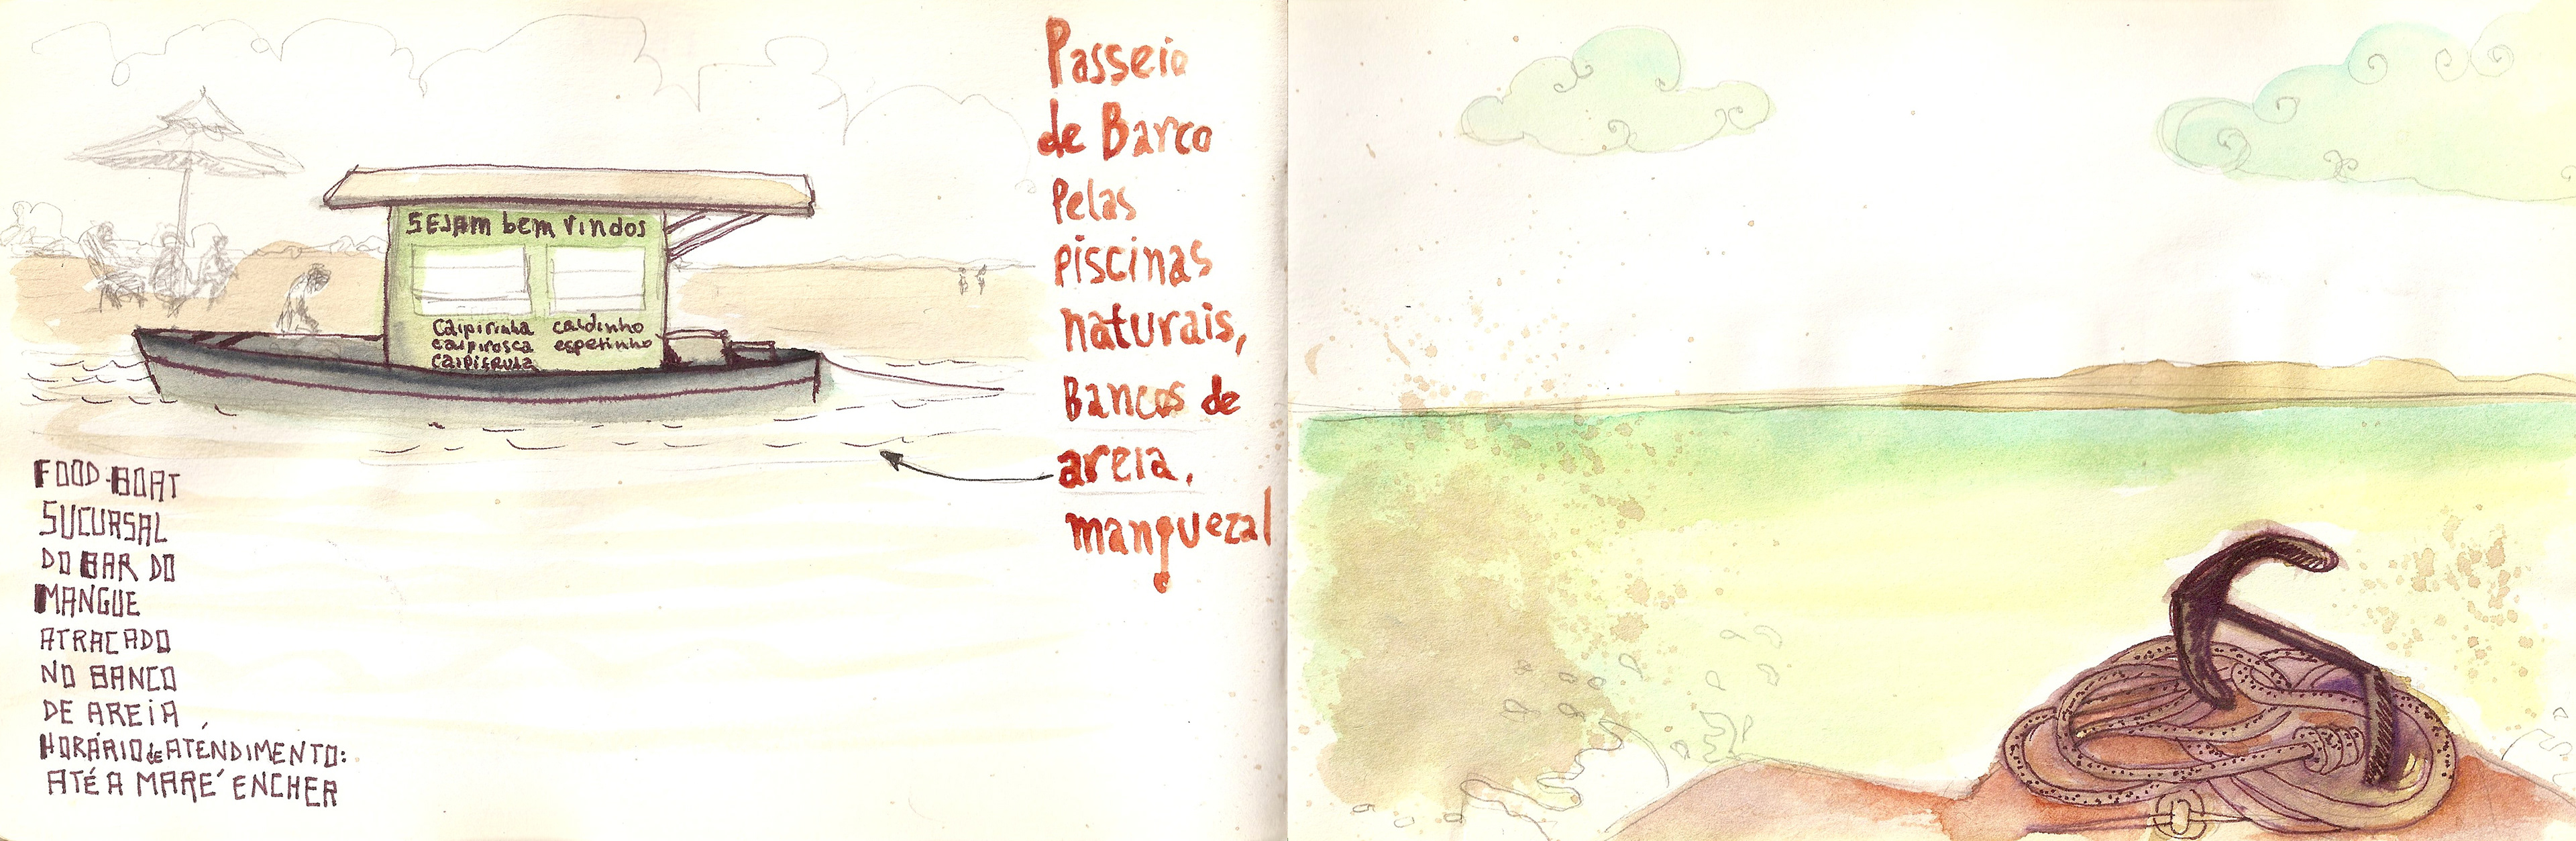 SEJAM bem vindos
Caipirinha caldinho
caipirosca espetinho
caipifruta
Passeio
de Barco
Pelas
piscinas
naturais,
Bancos de
areia,
manguezal
FOOD-BOAT
SUCURSAL
DO BAR DO
MANGUE
ATRACADO
NO BANCO
DE AREIA,
HORÁRIO de ATENDIMENTO:
ATÉ A MARÉ ENCHER